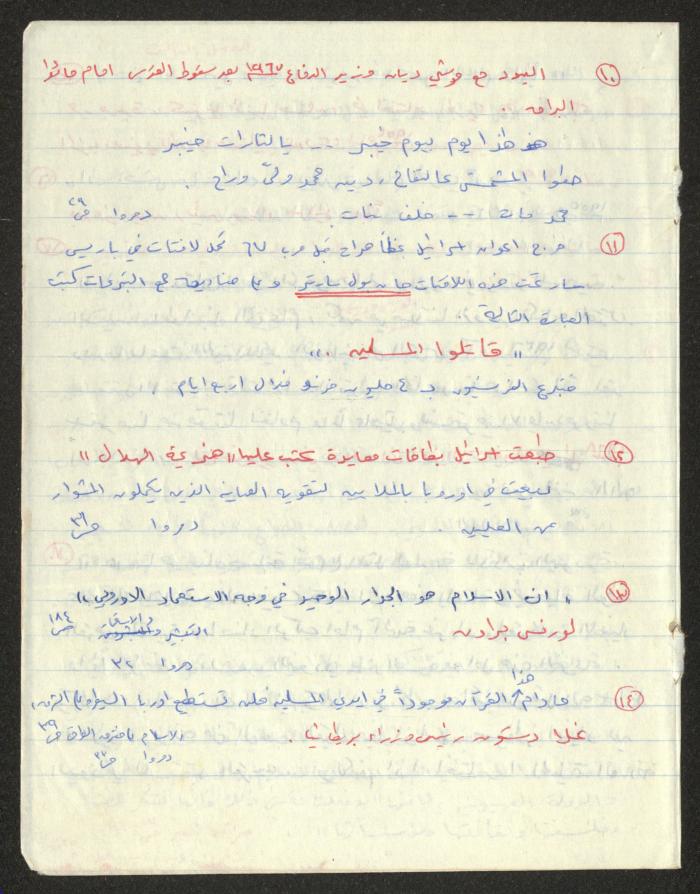 (١٠) اليهود مع موشي ديان وزير الدفاع ١٩٦٧ بعد سقوط القدس امام حائط
البراق .
هذا يوم بيوم خيبر .. يالثارات خيبر
حطوا المشمش عالتفاح ، دين محمد ولى وراح .
محمد مات .. خلف بنات . دمروا ص٢٩
(١١) خرج اعوان اسرائيل بمظاهرات قبل حرب ٦٧ تحمل لافتات في باريس
سار تحت هذه اللافتات جان بول سارتر وعلى صناديق جمع التبرعات كتبت
العبارة التالية .
" قاتلوا المسلمين .. "
فتبرع الفرنسيون بـ ٤ مليون فرنك خلال اربع ايام .
(١٢) طبعت اسرائيل بطاقات معايدة كتب عليها " هزيمة الهلال "
لبيعت في اوروبا بالملايين لتقوية الصهاينة الذين يكملون المشوار
عن الصليبيين . دمروا ص٣١
(١٣) " ان الاسلام هو الجدار الوحيد في وجه الاستعمار الاوروبي "
لورنس براون التبشير والاستعمار ص١٨٤
دمروا ٣٢
(١٤) مادام هذا القرآن موجوداً في ايدي المسلمين فلن تستطيع اوربا السيطرة على الشرق ،
غلادستون رئيس وزراء بريطانيا . الاسلام على مفترق الطرق ص٣٩
دمروا ص٣٢